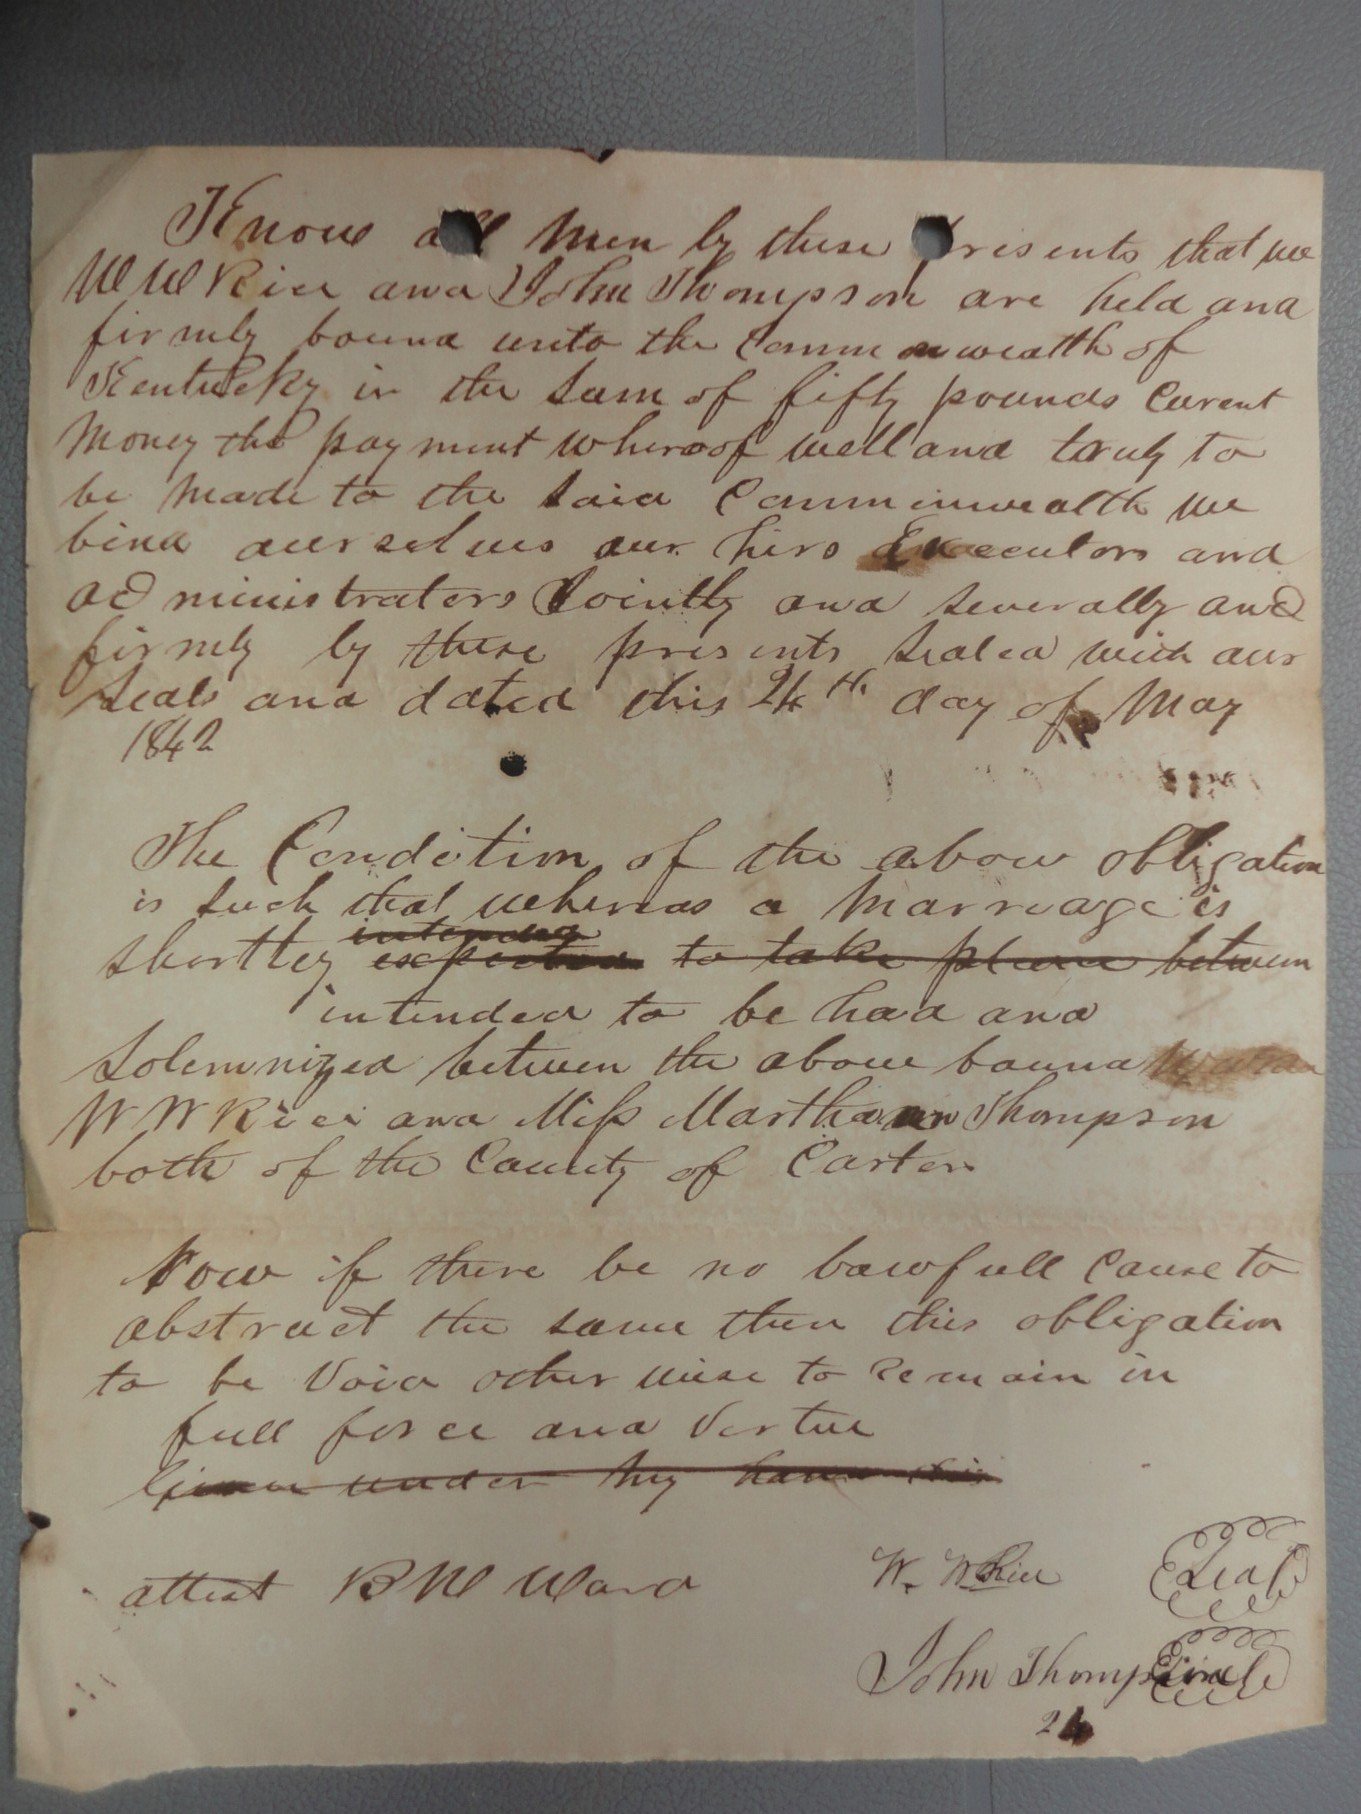 Know all men by these presents that we
W W Rice and John Thompson are held and
firmly bound unto the Commonwealth of
Kentucky in the sum of fifty pounds Curent
money the payment whereof well and truly to
be made to the said Comminwealth we
bind ourselves our hirs Executors and
administrators Jointly and severally and
firmly by these presents sealed with our
seals and dated this 24th day of May
1842
The Condition of the above obligation
is such that whereas a marriage is
intended
shortley expected to take place between
intended to be had and
Solemnized between the above bound
W W Rice and Miss Marthaann Thompson
both of the County of Carter
Now if there be no lawfull cause to
abstruct the same then this obligation
to be void other wise to remain in
full force and virtue
Given under my hand this
attest B W Ward
W. W Rice Seal
John Thompson Seal
24